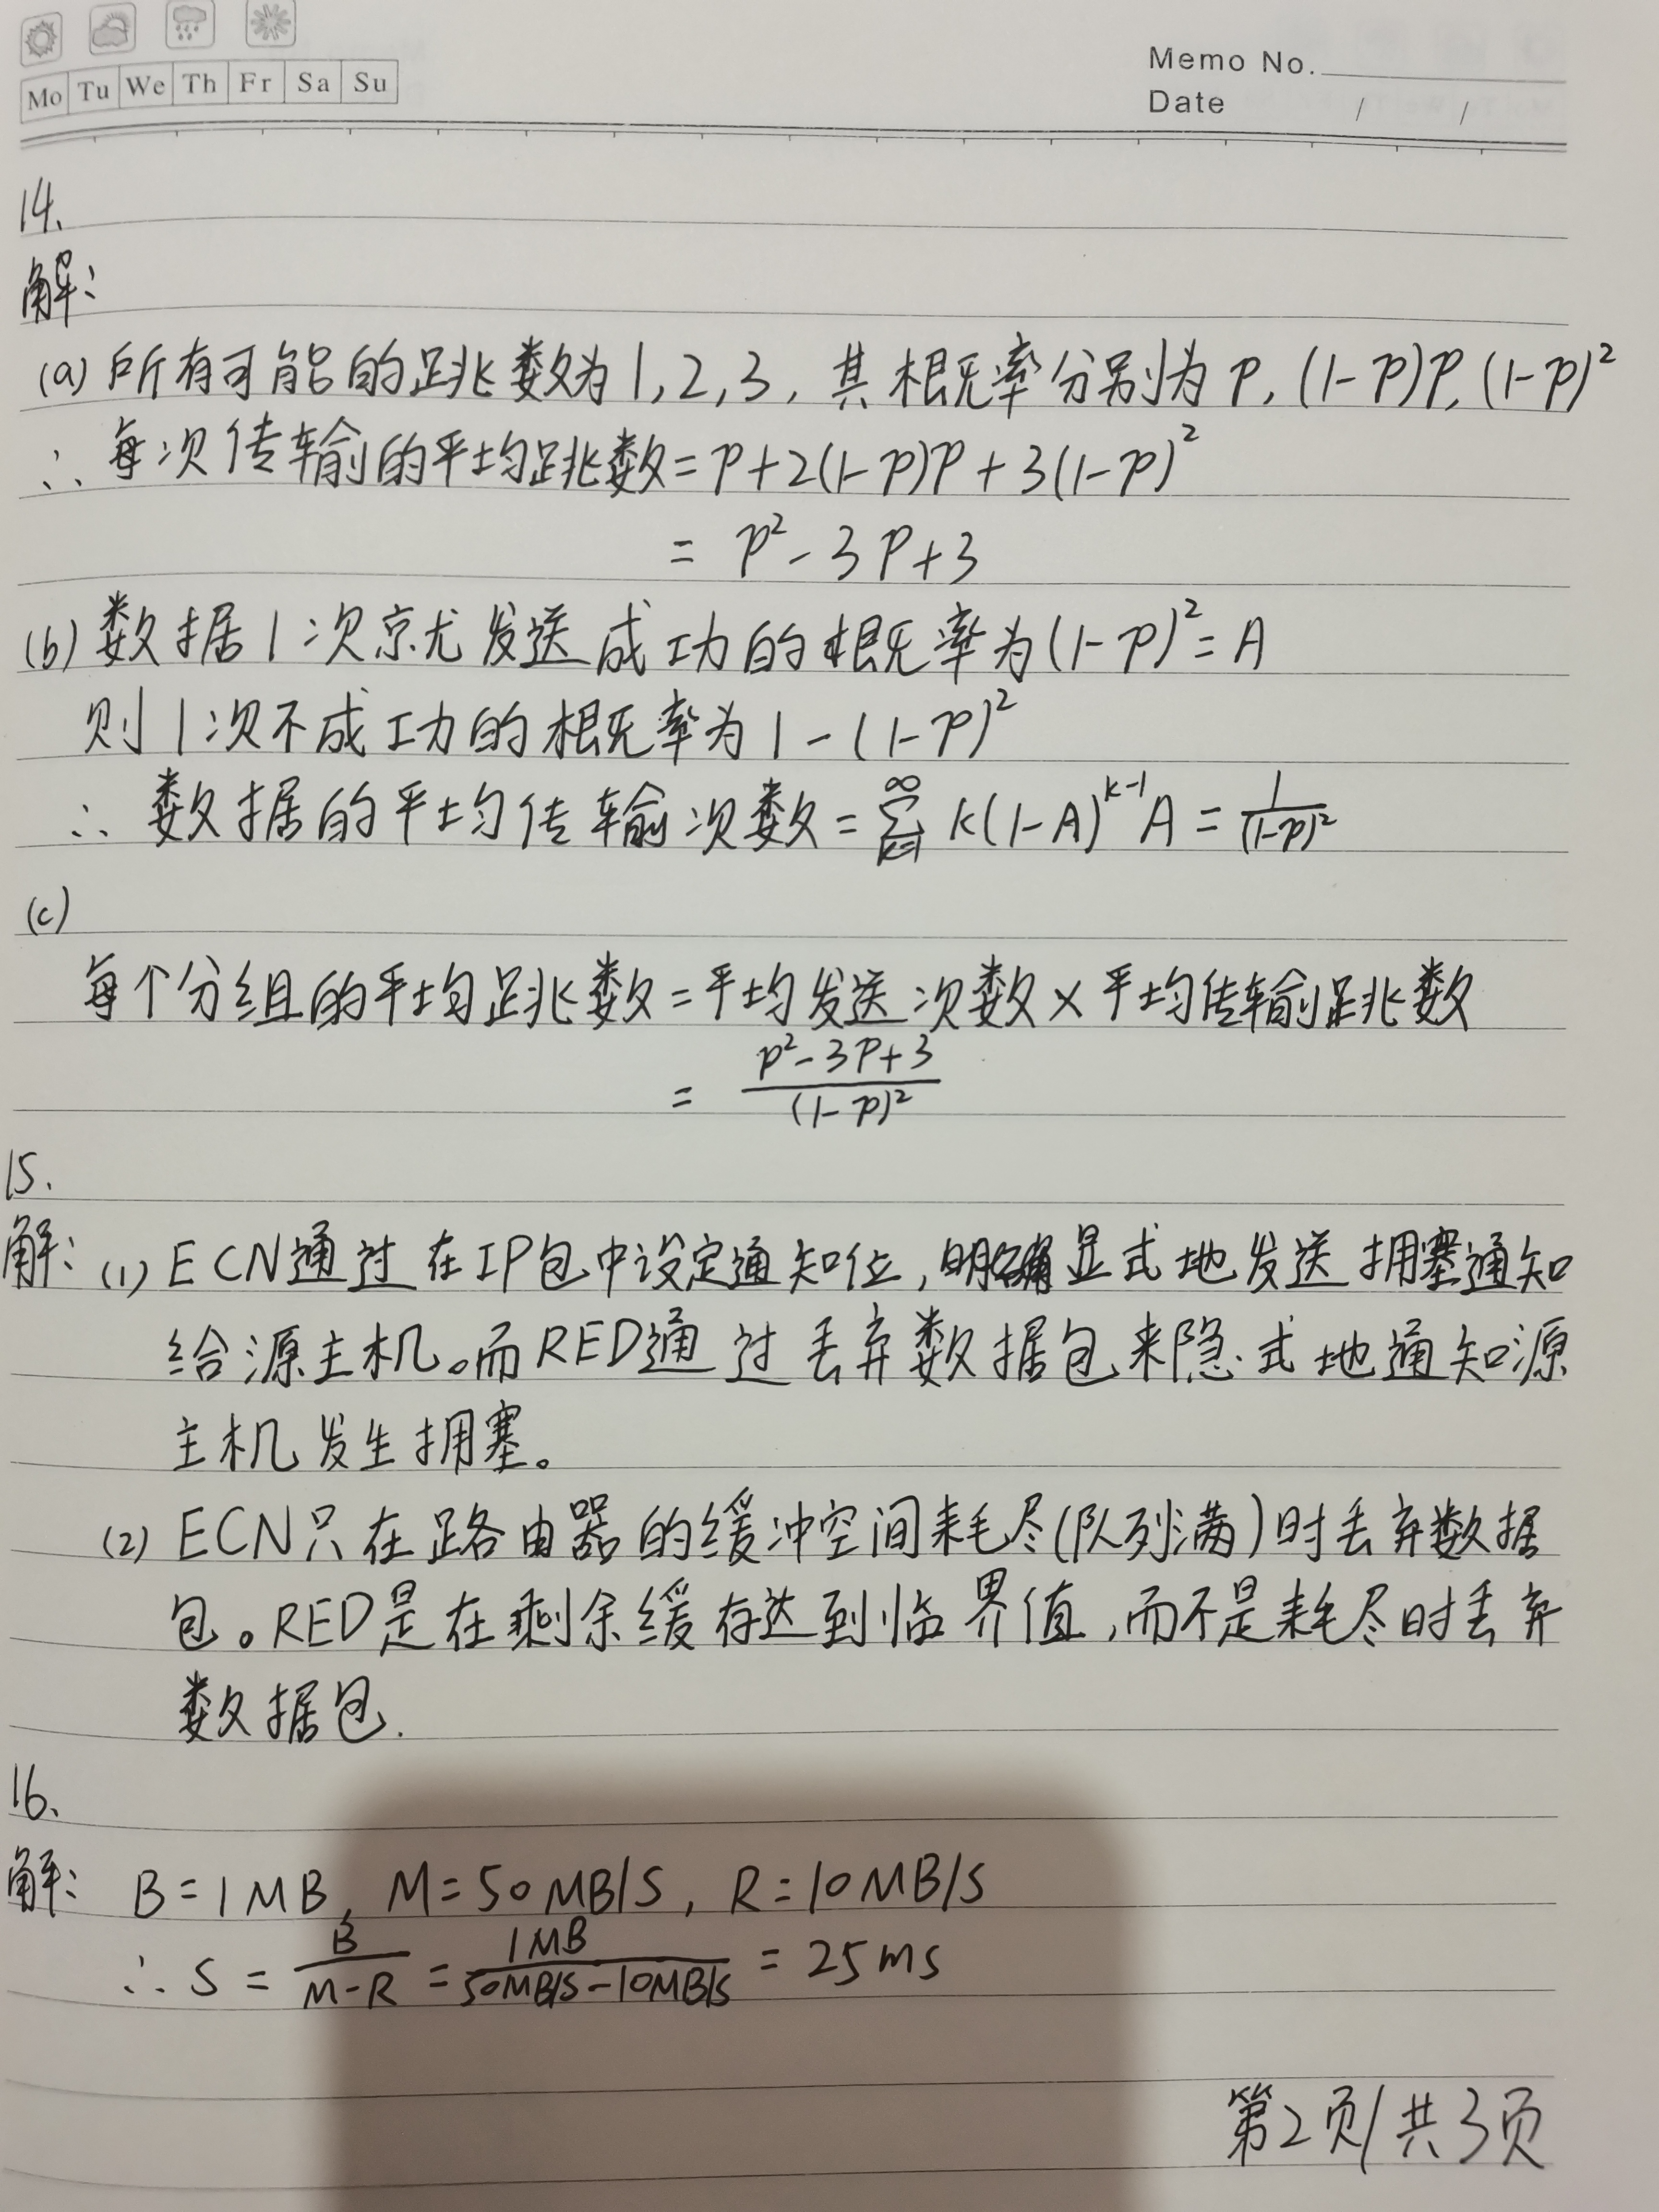 Mo Tu We Th Fr Sa Su
Memo No.
Date / /
14.
解：
(a) 所有可能的跳数为1,2,3，其概率分别为 P, (1-P)P, (1-P)²
∴ 每次传输的平均跳数=P+2(1-P)P+3(1-P)²
= P²-3P+3
(b) 数据1次就发送成功的概率为(1-P)²=A
则1次不成功的概率为1-(1-P)²
∴ 数据的平均传输次数=∑_{k=1}^{∞} k(1-A)^{k-1}A=1/(1-P)²
(c)
每个分组的平均跳数=平均发送次数×平均传输跳数
= (P²-3P+3)/(1-P)²
15.
解：(1) ECN通过在IP包中设定通知位，明确显式地发送拥塞通知
给源主机。而RED通过丢弃数据包来隐式地通知源
主机发生拥塞。
(2) ECN只在路由器的缓冲空间耗尽(队列满)时丢弃数据
包。RED是在剩余缓存达到临界值，而不是耗尽时丢弃
数据包.
16.
解： B=1MB, M=50MB/S, R=10MB/S
∴ S = B/(M-R) = 1MB/(50MB/S-10MB/S) = 25ms
第2页/共3页